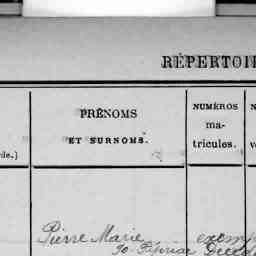 RÉPERTOI
PRÉNOMS
ET SURNOMS.
NUMÉROS
ma-
tricules.
rde.)
Pierre Marie exemp